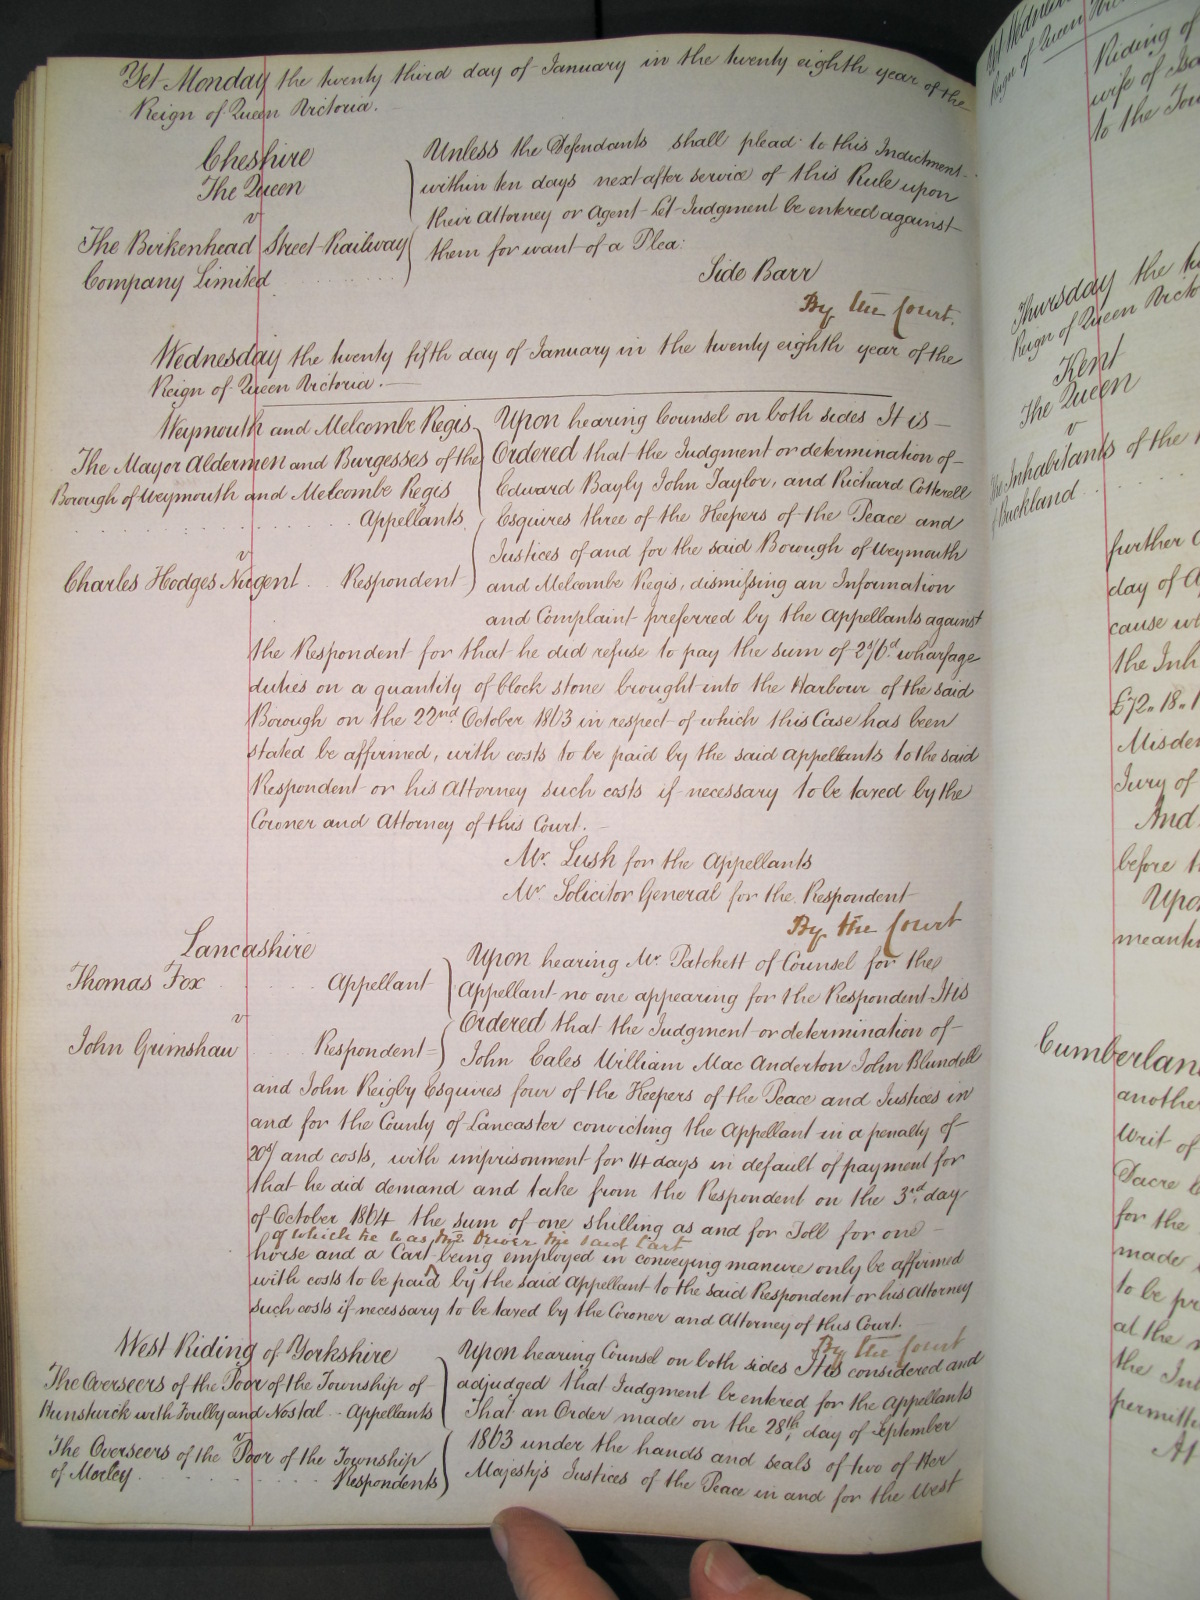 Yet Monday the twenty third day of January in the twenty eighth year of the
Reign of Queen Victoria.
Cheshire
The Queen
v
The Birkenhead Street Railway
Company Limited
Unless the Defendants shall plead to this Indictment
within ten days next after service of this Rule upon
their Attorney or Agent Let Judgment be entered against
them for want of a Plea:
Side Barr
By the Court.
Wednesday the twenty fifth day of January in the twenty eighth year of the
Reign of Queen Victoria.
Weymouth and Melcombe Regis
The Mayor Aldermen and Burgesses of the
Borough of Weymouth and Melcombe Regis
Appellants
v
Charles Hodges Nugent Respondent
Upon hearing Counsel on both sides It is
Ordered that the Judgment or determination of
Edward Bayly John Taylor, and Richard Cotterell
Esquires three of the Keepers of the Peace and
Justices of and for the said Borough of Weymouth
and Melcombe Regis, dismissing an Information
and Complaint preferred by the Appellants against
the Respondent for that he did refuse to pay the sum of 2s/6d wharfage
duties on a quantity of block stone brought into the Harbour of the said
Borough on the 22nd October 1863 in respect of which this Case has been
stated be affirmed, with costs to be paid by the said Appellants to the said
Respondent or his Attorney such costs if necessary to be taxed by the
Coroner and Attorney of this Court.
Mr. Lush for the Appellants
Mr. Solicitor General for the Respondent
By the Court
Lancashire
Thomas Fox Appellant
v
John Grimshaw Respondent
Upon hearing Mr. Patchett of Counsel for the
Appellant no one appearing for the Respondent It is
Ordered that the Judgment or determination of
John Eales William Mac Anderton John Blundell
and John Reigby Esquires four of the Keepers of the Peace and Justices in
and for the County of Lancaster convicting the Appellant in a penalty of
20s/ and costs, with imprisonment for 14 days in default of payment for
that he did demand and take from the Respondent on the 3rd day
of October 1864 the sum of one shilling as and for Toll for one
of which he was the Driver the said Cart
horse and a Cart being employed in conveying manure only be affirmed
with costs to be paid by the said Appellant to the said Respondent or his Attorney
such costs if necessary to be taxed by the Coroner and Attorney of this Court.
By the Court
West Riding of Yorkshire
The Overseers of the Poor of the Township of
Hunsturck with Foulby and Nostal Appellants
v
The Overseers of the Poor of the Township
of Morley Respondents
Upon hearing Counsel on both sides It is considered and
adjudged that Judgment be entered for the Appellants
That an Order made on the 28th day of September
1863 under the hands and seals of two of Her
Majesty's Justices of the Peace in and for the West
Riding of
wife of
to the
Thursday the
Reign of Queen
Kent
The Queen
v
Inhabitants of the
Buckland
further
day of
cause
the Inh
£72.18.
Misde
Jury of
And
before
Upo
meanti
Cumberlan
another
Writ of
Sacre
for the
made
to be pr
at the
the
permitt